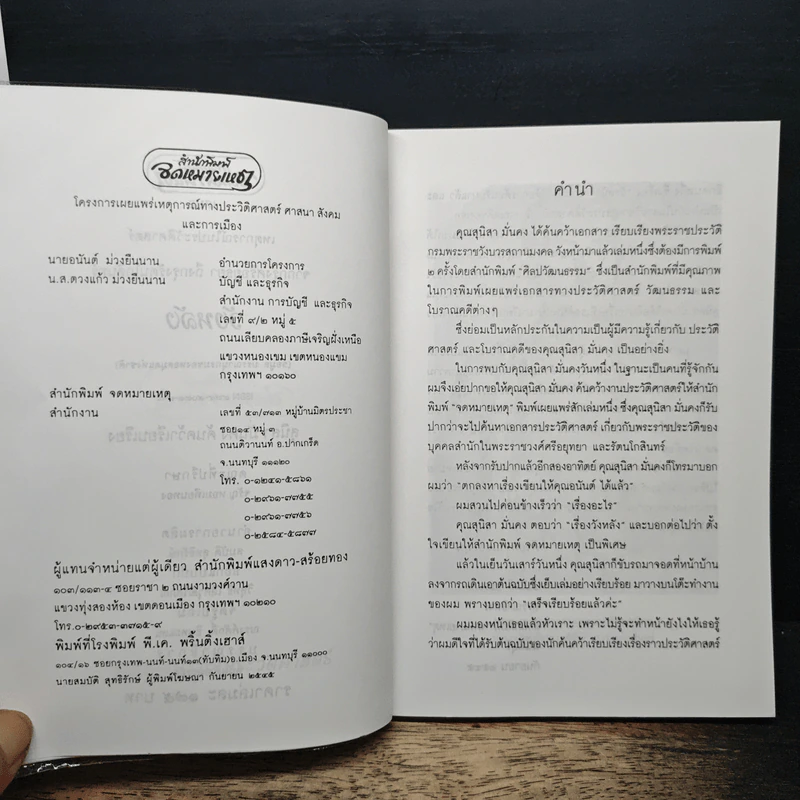 สำนักพิมพ์
จดหมายเหตุ
โครงการเผยแพร่เหตุการณ์ทางประวิติศาสตร์ ศาสนา สังคม
และการเมือง
นายอนันต์ ม่วงยืนนาน อำนวยการโครงการ
น.ส.ดวงแก้ว ม่วงยืนนาน บัญชี และธุรกิจ
สำนักงาน การบัญชี และธุรกิจ
เลขที่ ๙/๒ หมู่ ๕
ถนนเลียบคลองภาษีเจริญฝั่งเหนือ
แขวงหนองแขม เขตหนองแขม
กรุงเทพฯ ๑๐๑๖๐
สำนักพิมพ์ จดหมายเหตุ
สำนักงาน เลขที่ ๕๓/๗๑๓ หมู่บ้านมิตรประชา
ซอย๑๔ หมู่ ๓
ถนนติวานนท์ อ.ปากเกร็ด
จ.นนทบุรี ๑๑๑๒๐
โทร. ๐-๑๒๔๑-๕๘๖๑
๐-๒๙๖๑-๓๗๕๕
๐-๒๙๖๑-๓๗๕๖
๐-๒๕๘๔-๕๘๗๗
ผู้แทนจำหน่ายแต่ผู้เดียว สำนักพิมพ์แสงดาว-สร้อยทอง
๑๐๓/๑๑๓-๔ ซอยราชา ๒ ถนนงามวงศ์วาน
แขวงทุ่งสองห้อง เขตดอนเมือง กรุงเทพฯ ๑๐๒๑๐
โทร.๐-๒๙๕๓-๓๗๑๕-๙
พิมพ์ที่โรงพิมพ์ พี.เค. พริ้นติ้งเฮาส์
๑๐๔/๑๖ ซอยกรุงเทพ-นนท์-นนท์๑๓(ทับทิม)อ.เมือง จ.นนทบุรี ๑๑๐๐๐
นายสมบัติ สุทธิรักษ์ ผู้พิมพ์โฆษณา กันยายน ๒๕๔๕
คำนำ
คุณสุนิสา มั่นคง ได้ค้นคว้าเอกสาร เรียบเรียงพระราชประวัติ
กรมพระราชวังบวรสถานมงคล วังหน้ามาแล้วเล่มหนึ่งซึ่งต้องมีการพิมพ์
๒ ครั้งโดยสำนักพิมพ์ “ศิลปวัฒนธรรม” ซึ่งเป็นสำนักพิมพ์ที่มีคุณภาพ
ในการพิมพ์เผยแพร่เอกสารทางประวัติศาสตร์ วัฒนธรรม และ
โบราณคดีต่างๆ
ซึ่งย่อมเป็นหลักประกันในความเป็นผู้มีความรู้เกี่ยวกับ ประวัติ
ศาสตร์ และโบราณคดีของคุณสุนิสา มั่นคง เป็นอย่างยิ่ง
ในการพบกับคุณสุนิสา มั่นคงวันหนึ่ง ในฐานะเป็นคนที่รู้จักกัน
ผมจึงเอ่ยปากขอให้คุณสุนิสา มั่นคง ค้นคว้างานประวัติศาสตร์ให้สำนัก
พิมพ์ “จดหมายเหตุ” พิมพ์เผยแพร่สักเล่มหนึ่ง ซึ่งคุณสุนิสา มั่นคงก็รับ
ปากว่าจะไปค้นหาเอกสารประวัติศาสตร์ เกี่ยวกับพระราชประวัติของ
บุคคลสำนักในพระราชวงศ์ศรีอยุธยา และรัตนโกสินทร์
หลังจากรับปากแล้วอีกสองอาทิตย์ คุณสุนิสา มั่นคงก็โทรมาบอก
ผมว่า “ตกลงหาเรื่องเขียนให้คุณอนันต์ ได้แล้ว”
ผมสวนไปค่อนข้างเร็วว่า “เรื่องอะไร”
คุณสุนิสา มั่นคง ตอบว่า “เรื่องวังหลัง” และบอกต่อไปว่า ตั้ง
ใจเขียนให้สำนักพิมพ์ จดหมายเหตุ เป็นพิเศษ
แล้วในเย็นวันเสาร์วันหนึ่ง คุณสุนิสาก็ขับรถมาจอดที่หน้าบ้าน
ลงจากรถเดินเอาต้นฉบับซึ่งเย็บเล่มอย่างเรียบร้อย มาวางบนโต๊ะทำงาน
ของผม พรางบอกว่า “เสร็จเรียบร้อยแล้วค่ะ”
ผมมองหน้าเธอแล้วหัวเราะ เพราะไม่รู้จะทำหน้ายังไงให้เธอรู้
ว่าผมดีใจที่ได้รับต้นฉบับของนักค้นคว้าเรียบเรียงเรื่องราวประวัติศาสตร์